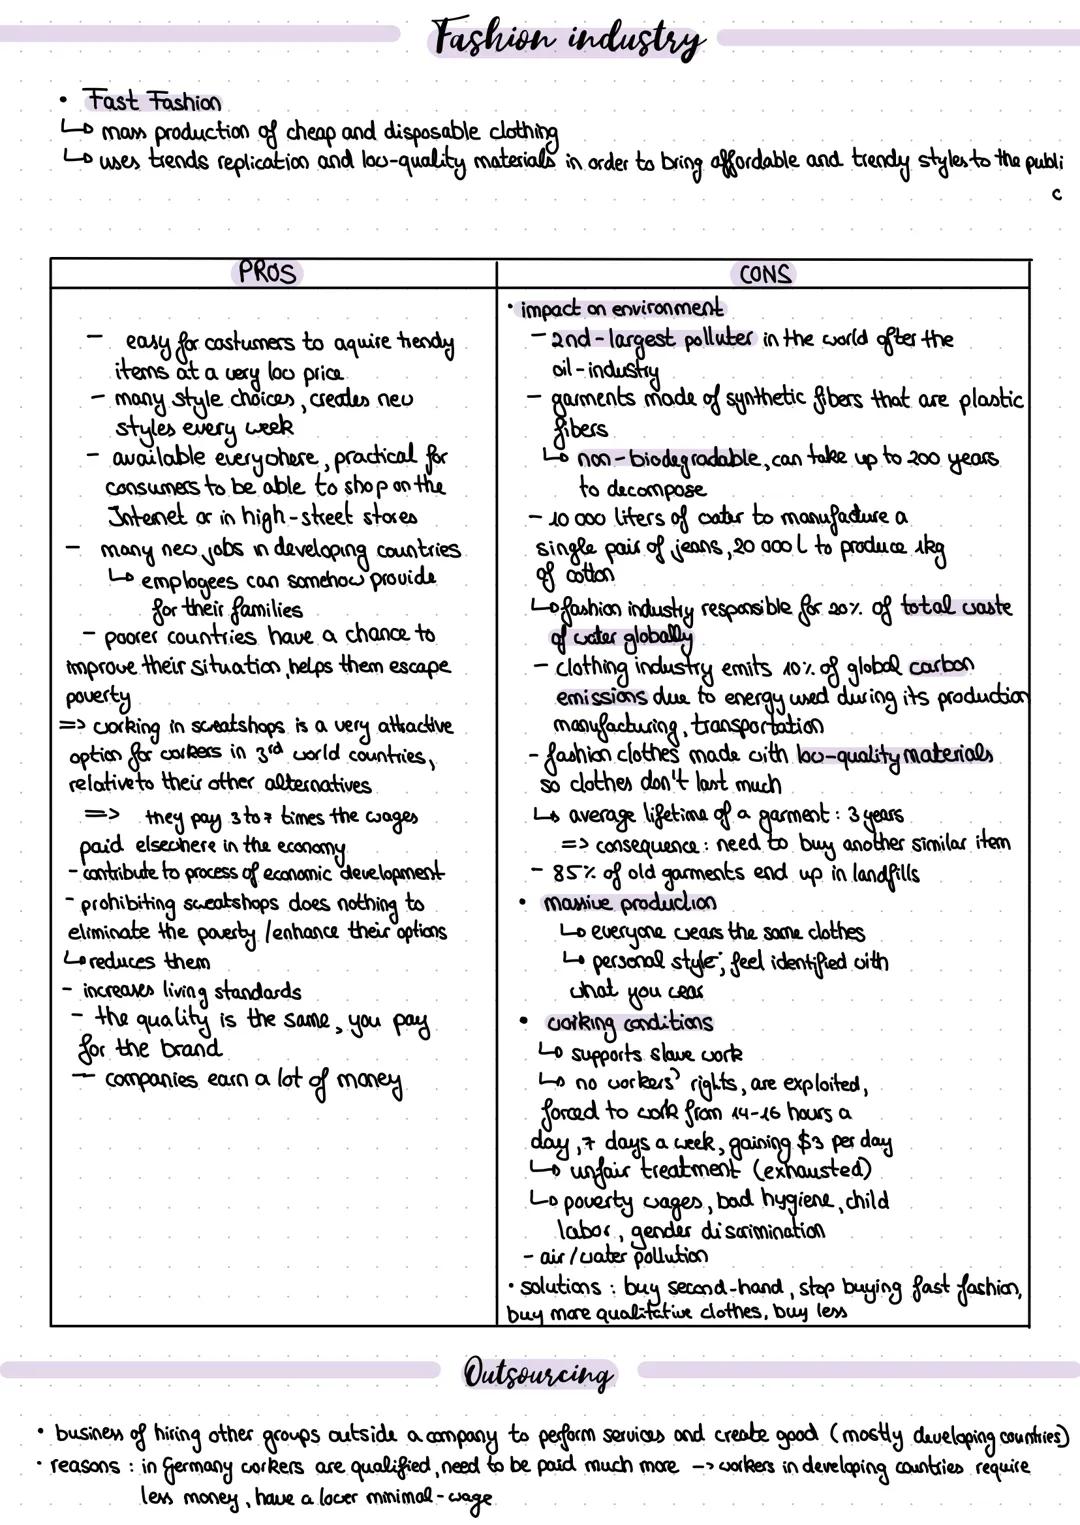 Fashion industry
• Fast Fashion
↳ mass production of cheap and disposable clothing
↳ uses trends replication and low-quality materials in order to bring affordable and trendy styles to the publi
c
PROS
- easy for costumers to aquire trendy
items at a very low price
- many style choices, creates new
styles every week
- available everywhere, practical for
consumers to be able to shop on the
Internet or in high-street stores
- many new jobs in developing countries
↳ employees can somehow provide
for their families
- poorer countries have a chance to
improve their situation, helps them escape
poverty
=> working in sweatshops is a very attractive
option for workers in 3rd world countries,
relative to their other alternatives
=> they pay 3 to 7 times the wages
paid elsewhere in the economy
- contribute to process of economic development
- prohibiting sweatshops does nothing to
eliminate the poverty / enhance their options
↳ reduces them
- increases living standards
- the quality is the same, you pay
for the brand
- companies earn a lot of money
CONS
• impact on environment
- 2nd-largest polluter in the world after the
oil-industry
- garments made of synthetic fibers that are plastic
fibers
↳ non-biodegradable, can take up to 200 years
to decompose
- 10 000 liters of water to manufacture a
single pair of jeans, 20 000 L to produce 1kg
of cotton
↳ fashion industry responsible for 20% of total waste
of water globally
- clothing industry emits 10% of global carbon
emissions due to energy used during its production
manufacturing, transportation
- fashion clothes made with low-quality materials
so clothes don't last much
↳ average lifetime of a garment: 3 years
=> consequence: need to buy another similar item
- 85% of old garments end up in landfills
• massive production
↳ everyone wears the same clothes
↳ personal style; feel identified with
what you wear
• working conditions
↳ supports slave work
↳ no workers' rights, are exploited,
forced to work from 14-16 hours a
day, 7 days a week, gaining $3 per day
↳ unfair treatment (exhausted)
↳ poverty wages, bad hygiene, child
labor, gender discrimination
- air/water pollution
• solutions: buy second-hand, stop buying fast fashion,
buy more qualitative clothes, buy less
Outsourcing
• business of hiring other groups outside a company to perform services and create good (mostly developing countries)
• reasons: in Germany workers are qualified, need to be paid much more -> workers in developing countries require
less money, have a lower minimal-wage